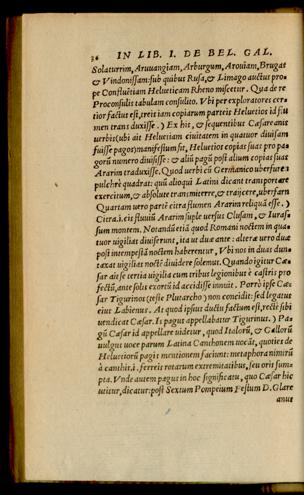 36 IN LIB. I. DE BEL. GAL.
Solaturrim, Aruuangiam, Arburgum, Arouiam, Brugas
& Vindonissam: sub quibus Rusa, & Limago auctus pro=
pe Confluẽtiam Helueticam Rheno miscetur. Qua de re
Proconsulis tabulam consulito. Vbi per exploratores cer=
tior factus est, treis iam copiarum parteis Heluetios id flu
men trans duxisse.) Ex his, & sequentibus Cæsare anis
uerbis (ubi ait Heluetiam ciuitatem in quatuor diuisam
fuisse pagos) manifestum fit, Heluetios copias suas pro pa=
gorũ numero diuisisse: & aliũ pagũ post alium copias suas
Ararim traduxisse. Quod uerbi cũ Germanico uberſuren
pulchrè quadrat: quũ alioqui Latini dicant transportare
exercitum, & absolute transmittere, & traijcere, uberfarn
Quartam uero partẽ citra flumen Ararim reliquã esse.)
Citra.i.cis fluuiũ Ararim suple uersus Clusam, & Iuras=
sum montem. Notandũ etiã quod Romani noctem in qua=
tuor uigilias diuiserunt, ita ut duæ ante: alteræ uero duæ
post intempestã noctem haberentur, Vbi nos in duas dun=
taxat uigilias noctẽ diuidere solemus. Quando igitur Cæ=
sar ait se tertia uigilia cum tribus legionibus è castris pro
fectũ, ante solis exortũ id accidisse innuit. Porrò ipse Cæ=
sar Tigurinos (teste Plutarcho) non concidit: sed legatus
eius Labienus. At quod ipsius ductu factum est, rectè sibi
uendicat Cæsar. Is pagus appellabatur Tigurinus.) Pa=
gũ Cæsar id appellare uidetur, quod Italorũ, & Gallorũ
uulgus uoce parum Latina Canthonem uocãt, quoties de
Heluetiorũ pagis mentionem faciunt: metaphora nimirũ
à canthis.i. ferreis rotarum extremitatibus, seu oris sum=
pta. Vnde autem pagus in hoc significatu, quo Cæsar hic
utitur, dicatur: post Sextum Pompeium Festum D. Glare
anus